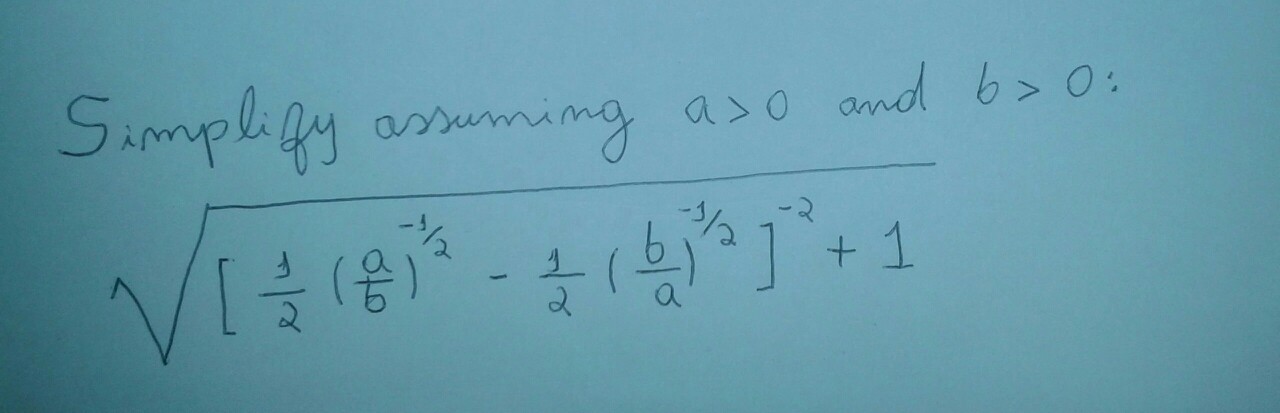 Simplify assuming a>0 and b>0:
√([1/2 (a/b)^(-1/2) - 1/2 (b/a)^(-1/2)]^(-2) + 1)